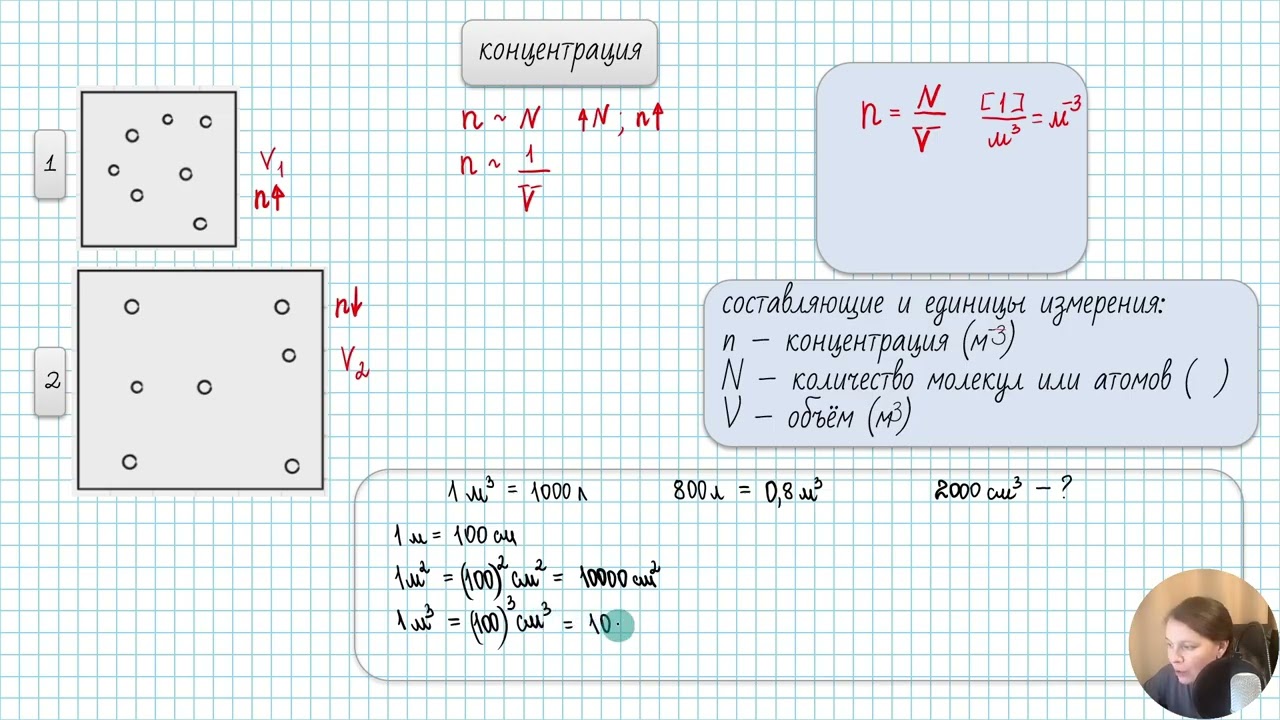 концентрация
n ~ N ↑N ; n↑
n ~ 1/V
n = N/V [1]/м³ = м⁻³
1
V₁
n↑
2
n↓
V₂
составляющие и единицы измерения:
n — концентрация (м⁻³)
N — количество молекул или атомов ( )
V — объём (м³)
1 м³ = 1000 л 800 л = 0,8 м³ 2000 см³ – ?
1 м = 100 см
1 м² = (100)² см² = 10000 см²
1 м³ = (100)³ см³ = 10·